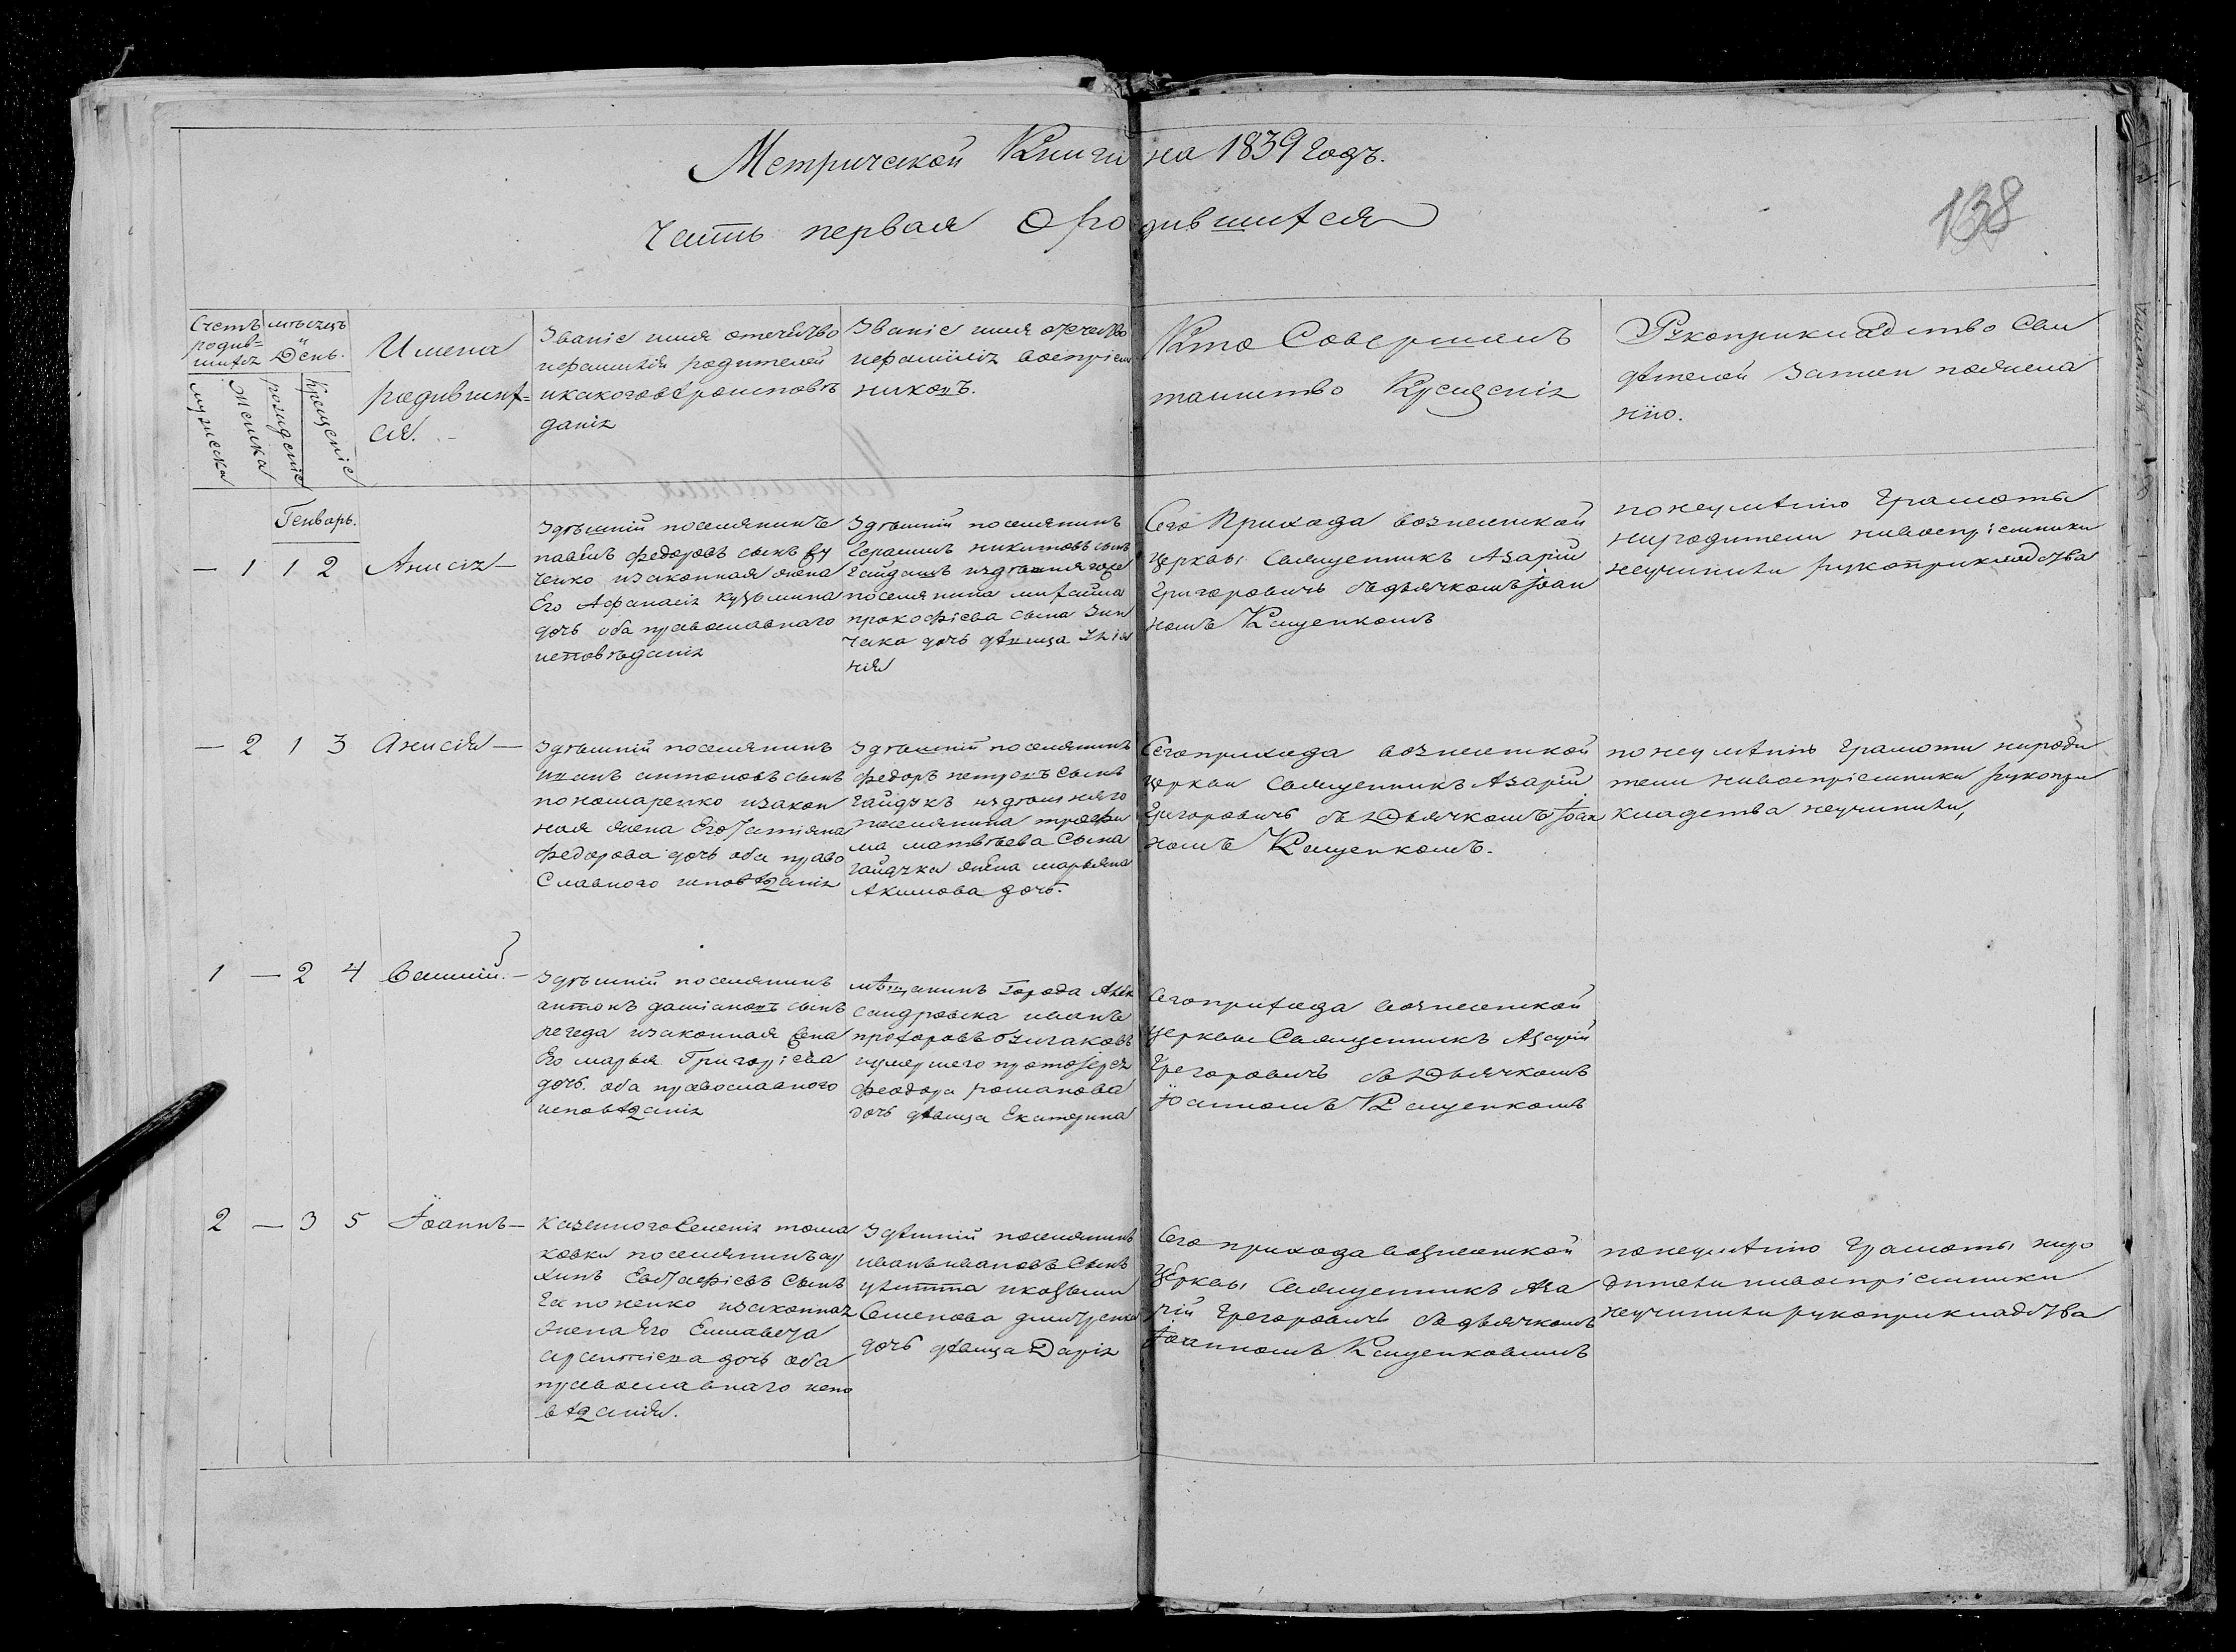 Метрической Книги на 1839 Годъ.
Часть первая О родившихся
138
Счетъ
родив=
шихся
мѣсяцъ
и
День.
мужеска
женска
рожденіе
крещеніе
Имена
родивших=
ся.
Званіе имя отечество
ифамилія родителей
икакоговѣроисповѣ
данія
Званіе имя отечество
ифамилія воспріем
никовъ.
Кто Совершалъ
таинство Крещенія
Рукоприкладство Сви
дѣтелей Записи пожела
нію.
Генварь.
— 1 1 2 Анисія —
Здѣшній поселянинъ
павелъ федоровъ сынъ
ченко изаконная жена
Его Афанасія кузьмина
дочь оба православнаго
исповѣданія
Здѣшній поселянинъ
Герасимъ никитовъ сынъ
Гайдашъ издѣшняго
поселянина михайла
прокофіева сына
дочь дѣвица
Сего Прихода вознесенской
церквы Священникъ Азарій
Григоровичь съдьячкомъ Іоан
номъ Кащенкомъ
понеумѣнію Грамоты
ниродители нивоспріемники
неучинили рукоприкладства
— 2 1 3 Анисія —
Здѣшній поселянинъ
иванъ антоновъ сынъ
пономаренко изакон
ная жена Его Татіяна
федорова дочь оба право
Славного исповѣданія
Здѣшній поселянинъ
федоръ петровъ Сынъ
Гайдукъ издѣшняго
поселянина трофи
ма матвѣева Сына
гайдука жена марьяна
Акимова дочь.
Сегоприхода вознесенской
церкви Священникъ Азарій
Григоровичь съ Дьячкомъ Іоан
номъ Кащенкомъ.
понеумѣнію Грамоти нироди
тели нивоспріемники рукопри
кладства неучинили,
1 — 2 4 Василій. —
Здѣшній поселянинъ
антонъ даміановъ сынъ
регеда изаконная жена
Его марья Григоріева
дочь оба православного
исповѣданія
мѣщанинъ Города Алек
сандровска иванъ
прохоровъ
иумершего протоіерея
Феодора романова
дочь дѣвица Екатерина
Сегоприхода вознесенской
церквы Священникъ Азарій
Грегоровичъ съ Дьячкомъ
Іоанномъ Кащенкомъ
2 — 3 5 Іоаннъ —
казенногоСеленія тома
ковки поселянинъ ау
хипъ Евстафіевъ Сынъ
Гапоненко изаконная
жена Его Елисавета
арентіева дочь оба
православнаго испо
вѣданія.
Здѣшній поселянинъ
иванъивановъ Сынъ
икозьми
Семенова дмитренка
дочь дѣвица Дарія
Сего прихода вознесенской
Церквы Священникъ Аза
рій Грегоровичъ съдьячкомъ
Іоанномъ Кащенковымъ
понеумѣнію Грамоты ниро
дители нивоспріемники
неучинили рукоприкладства